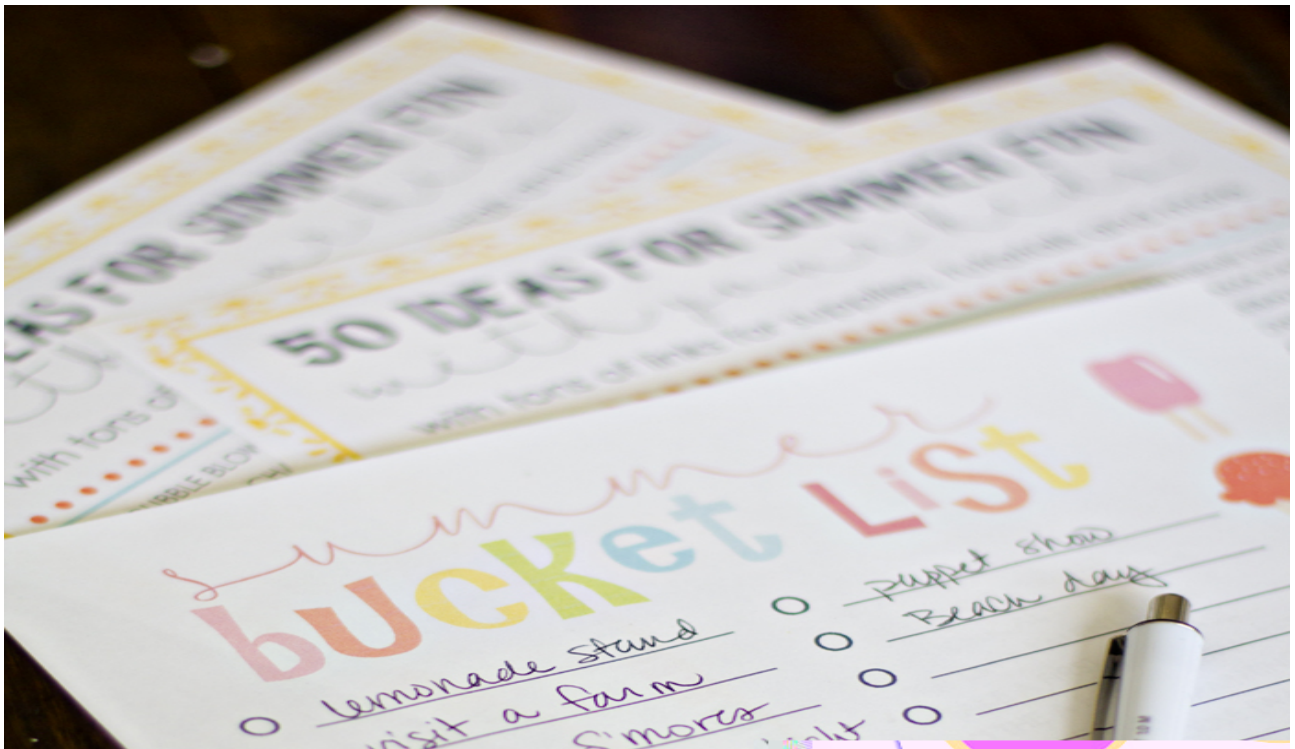 EAS FOR SUMMER FUN
with tons of
BUBBLE BLOW
50 IDEAS FOR SUMMER FUN
with tons of links for
summer
bucket List
lemonade stand
visit a farm
S'mores
puppet show
Beach day